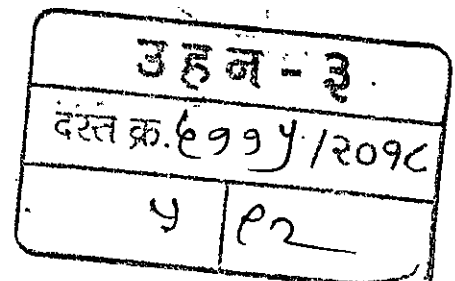 उहन - ३
दस्त क्र. ९११५/२०१८
५ ९२